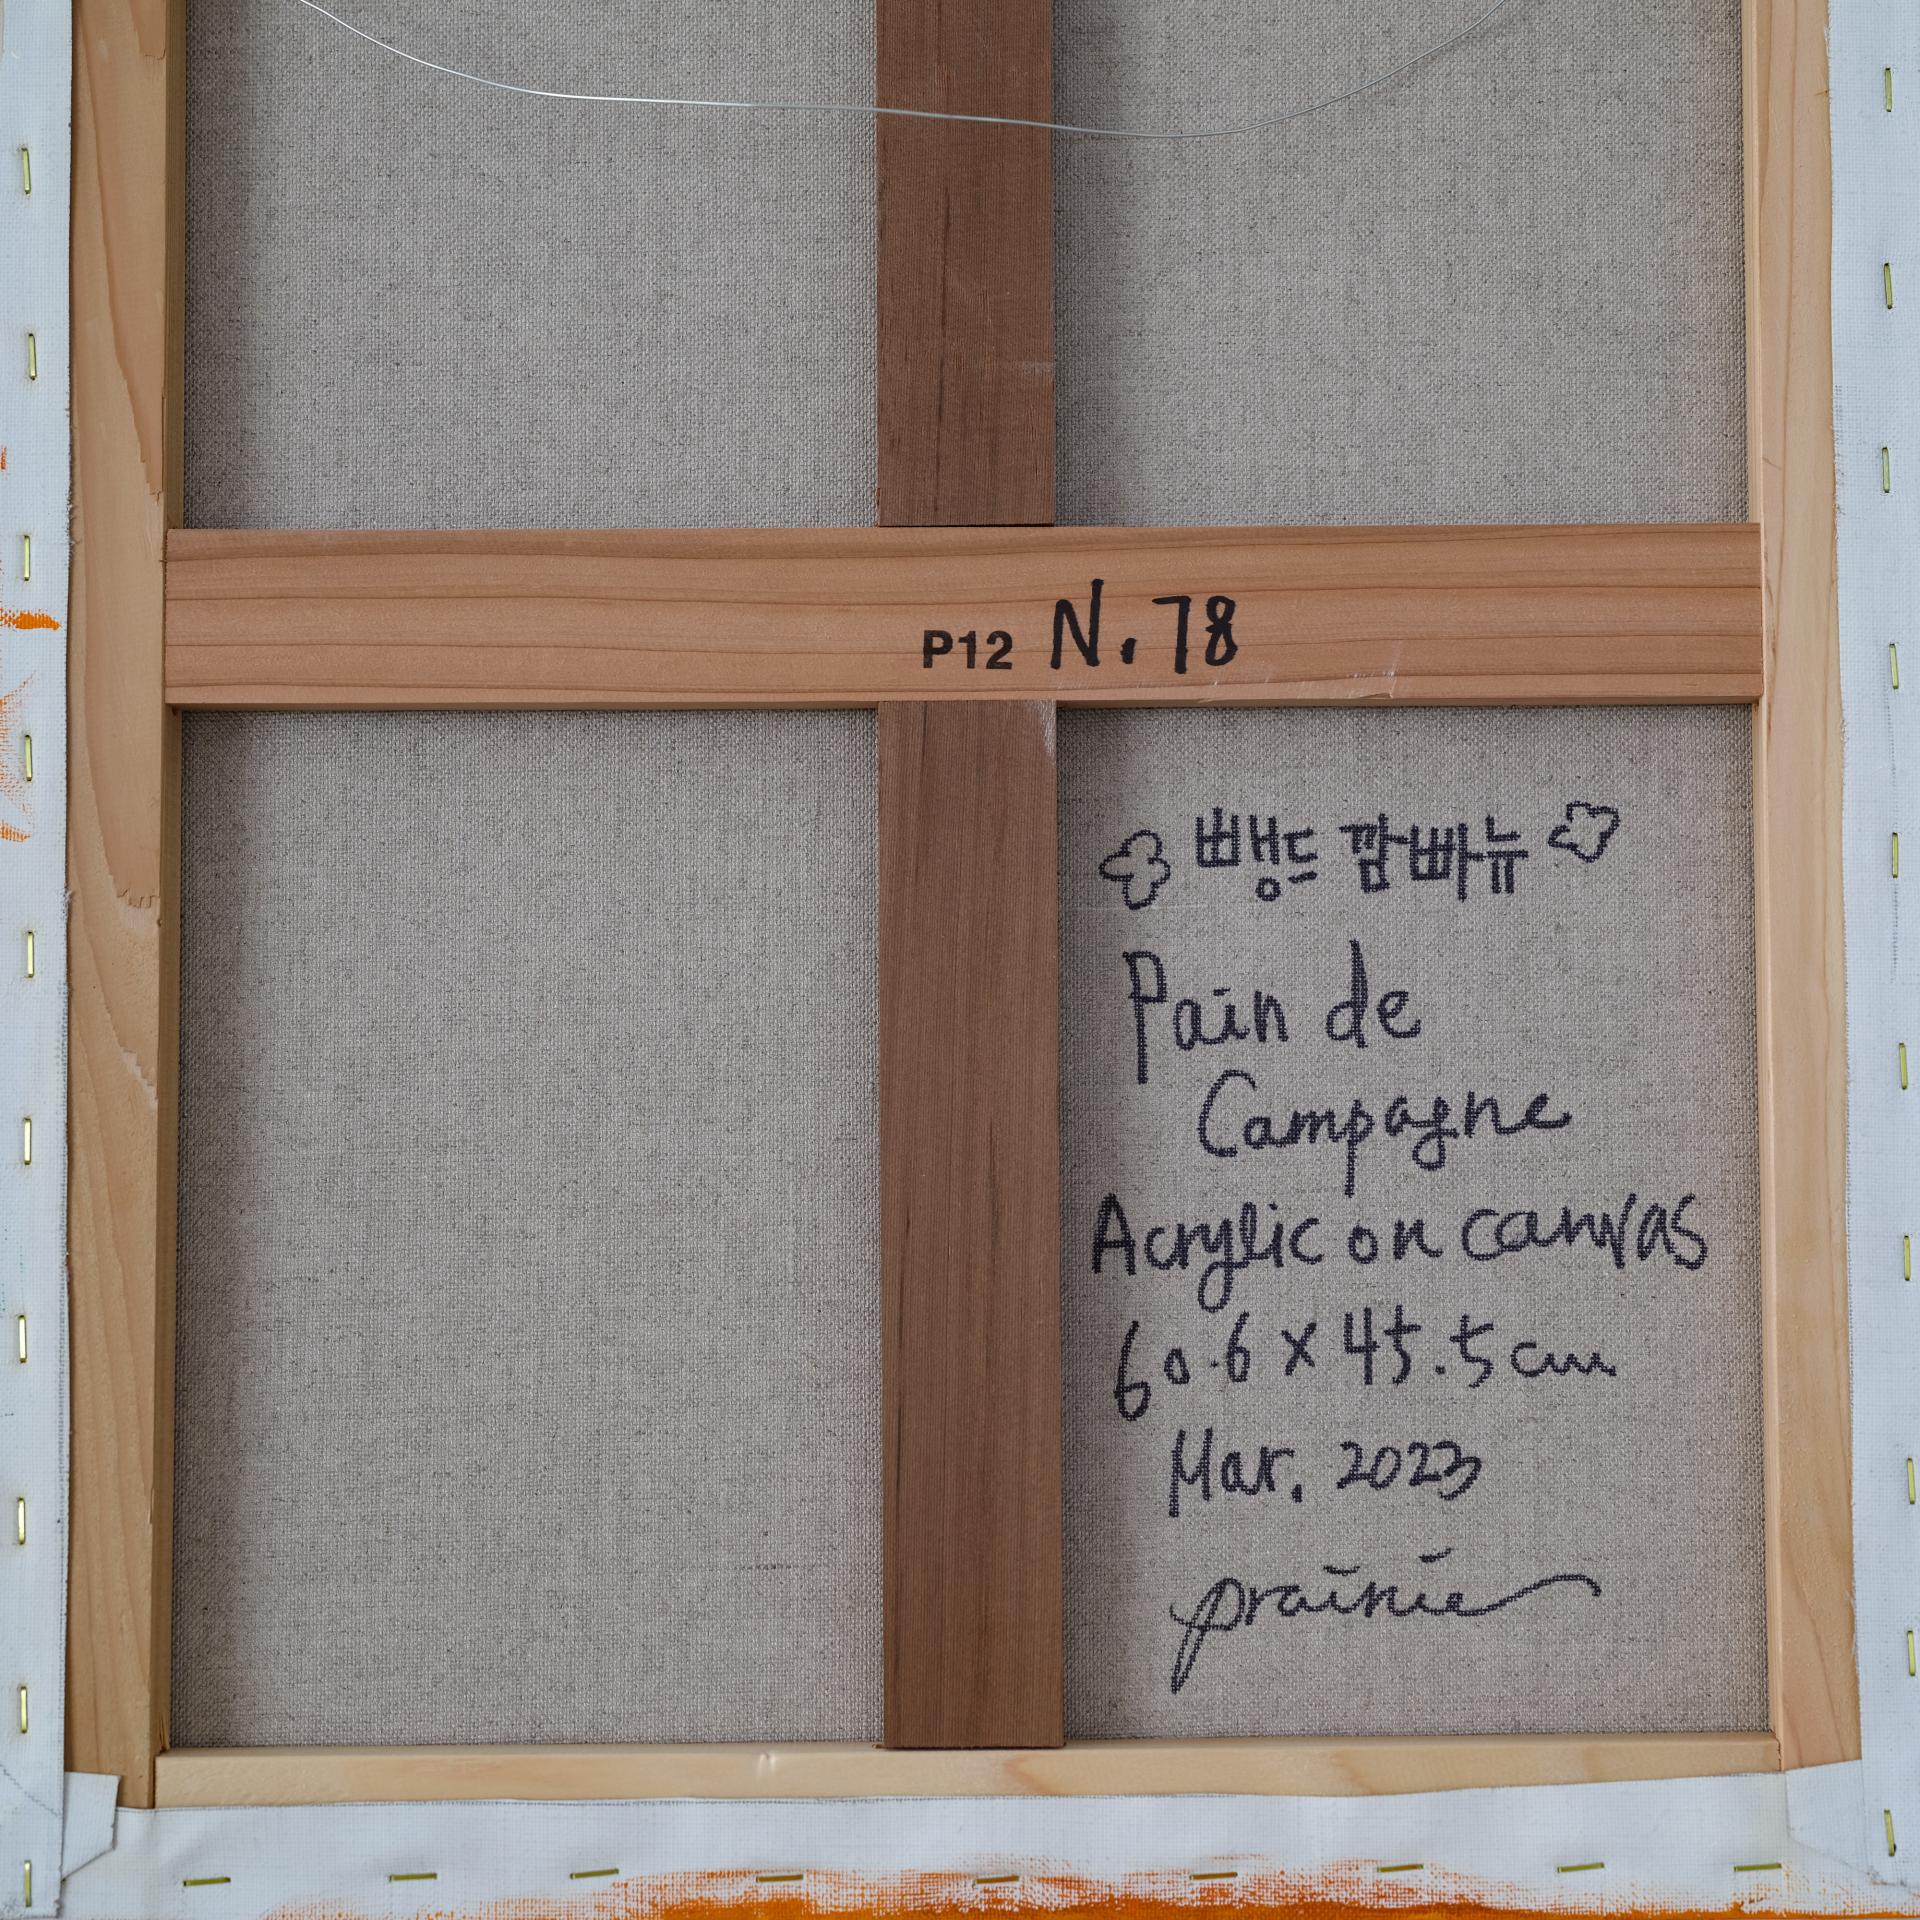 P12 N.78
빵드 깜빠뉴
Pain de
Campagne
Acrylic on canvas
60.6 x 45.5cm
Mar. 2023
prairie